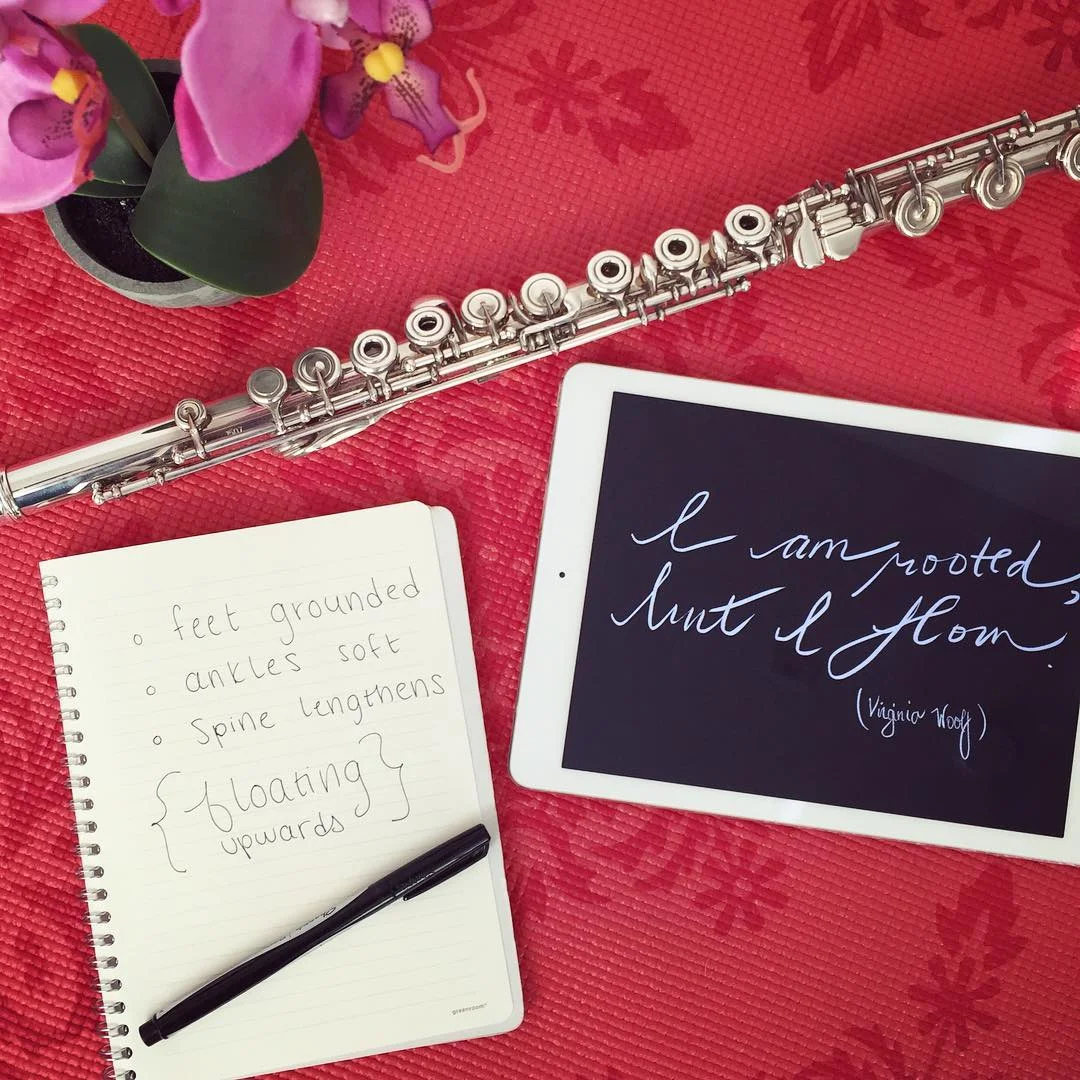 feet grounded
ankles soft
spine lengthens
{floating
upwards}
greenroom
I am rooted,
but I flow.
(Virginia Woolf)